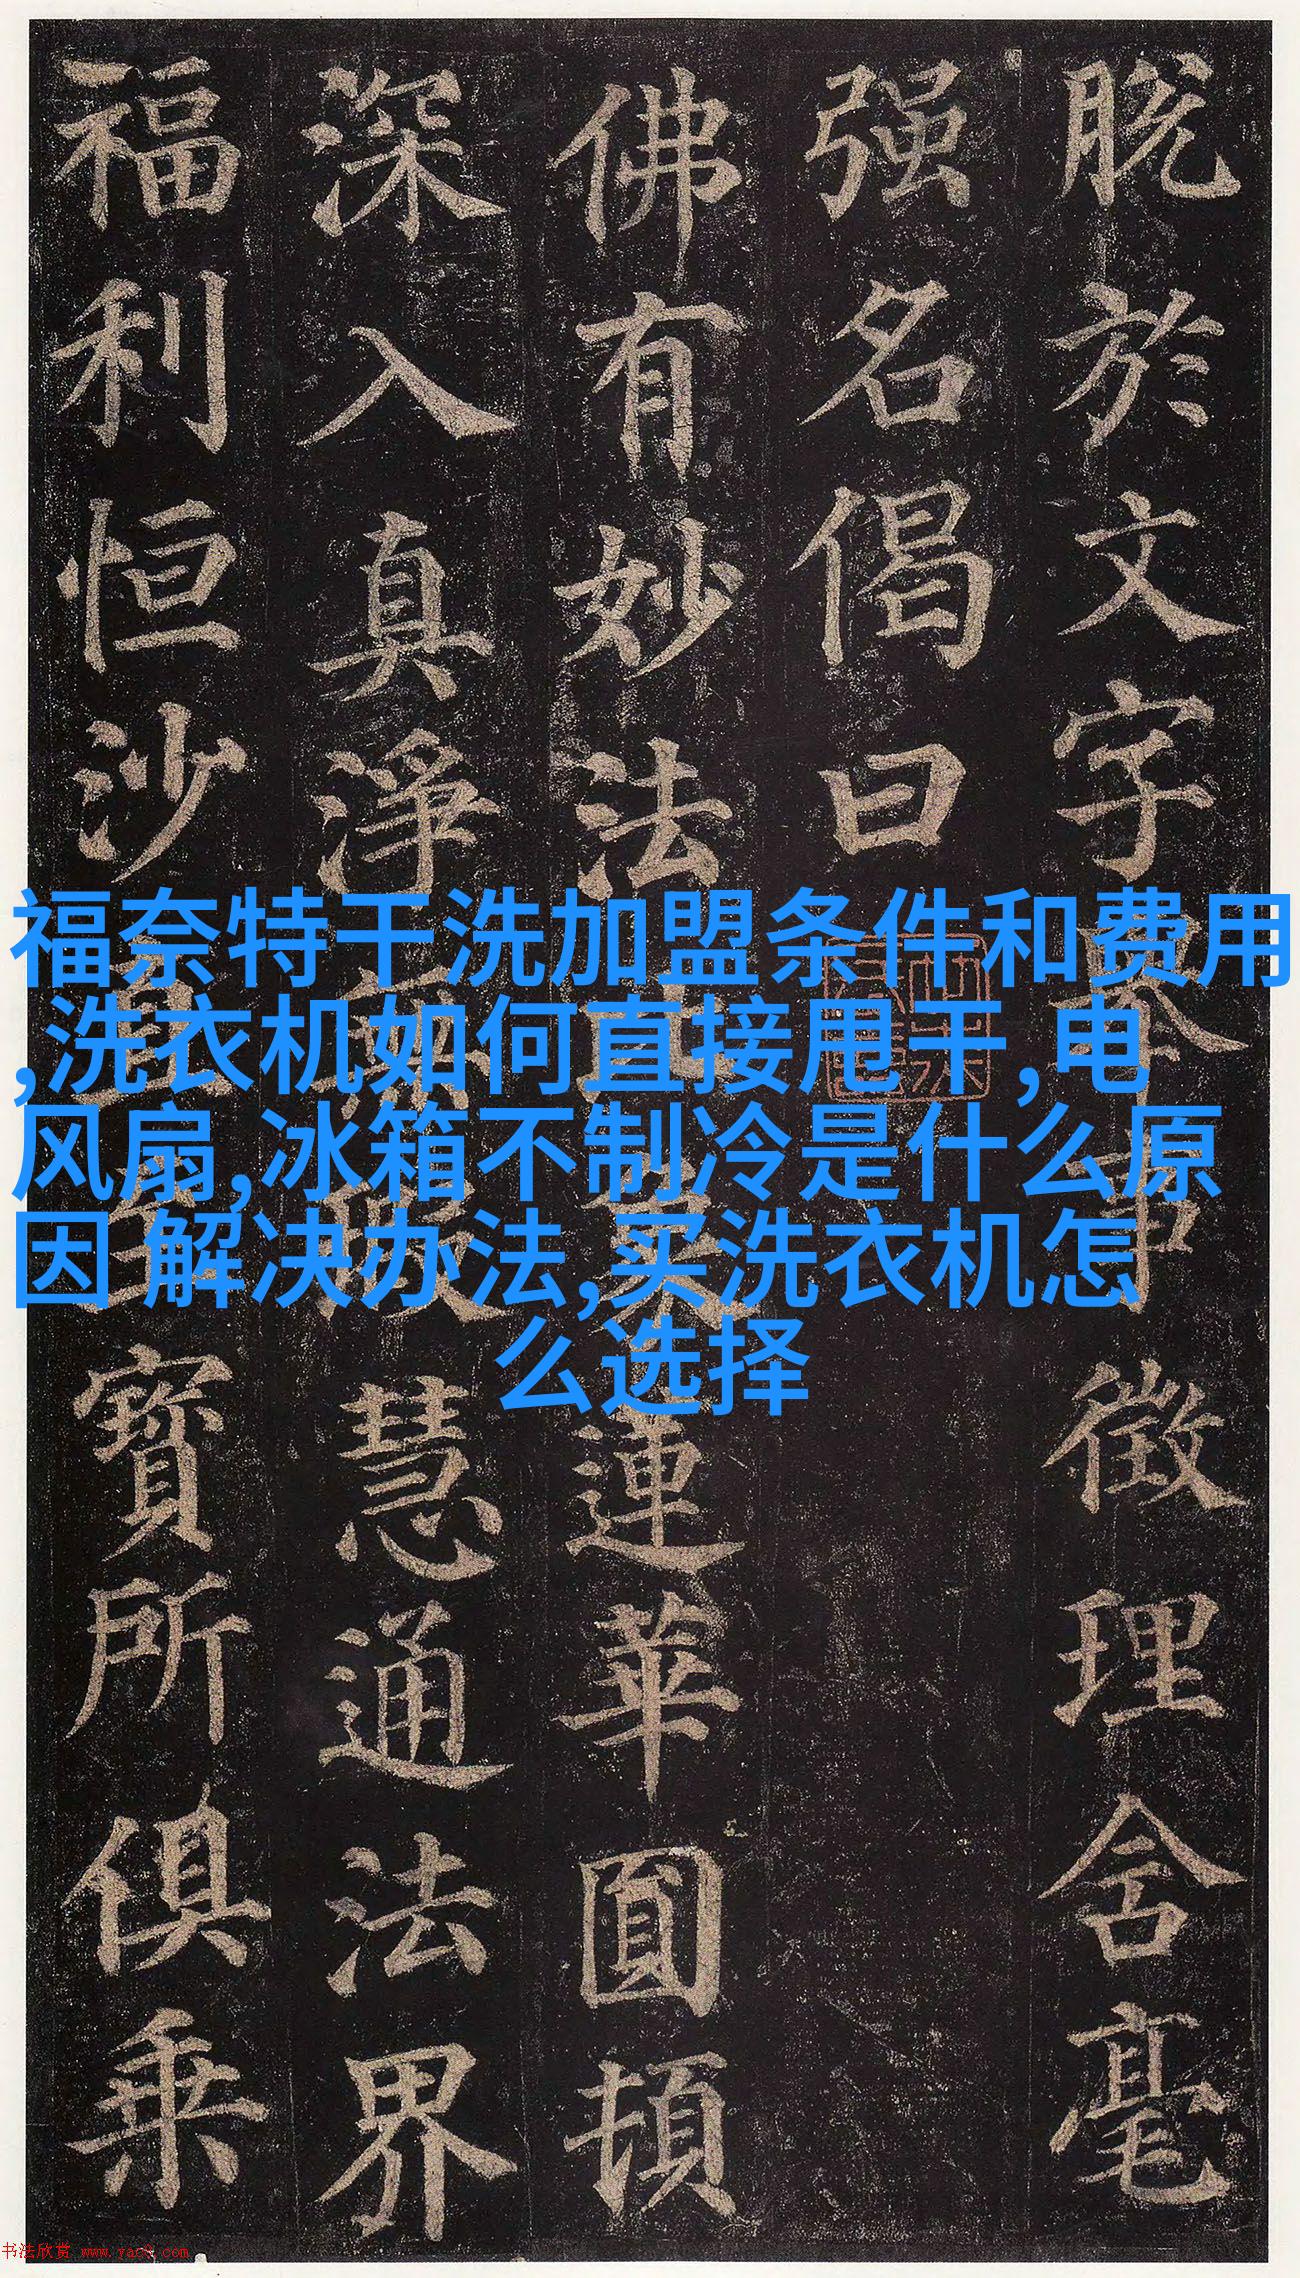 脫於文字徵理含毫
强名偈曰
佛有妙法蓮華圓頓
深入真淨慧通法界
福利恒沙寶所俱乘
福奈特干洗加盟条件和费用
,洗衣机如何直接甩干,电
风扇,冰箱不制冷是什么原
因 解决办法,买洗衣机怎
么选择
书法欣赏 www.yac8.com